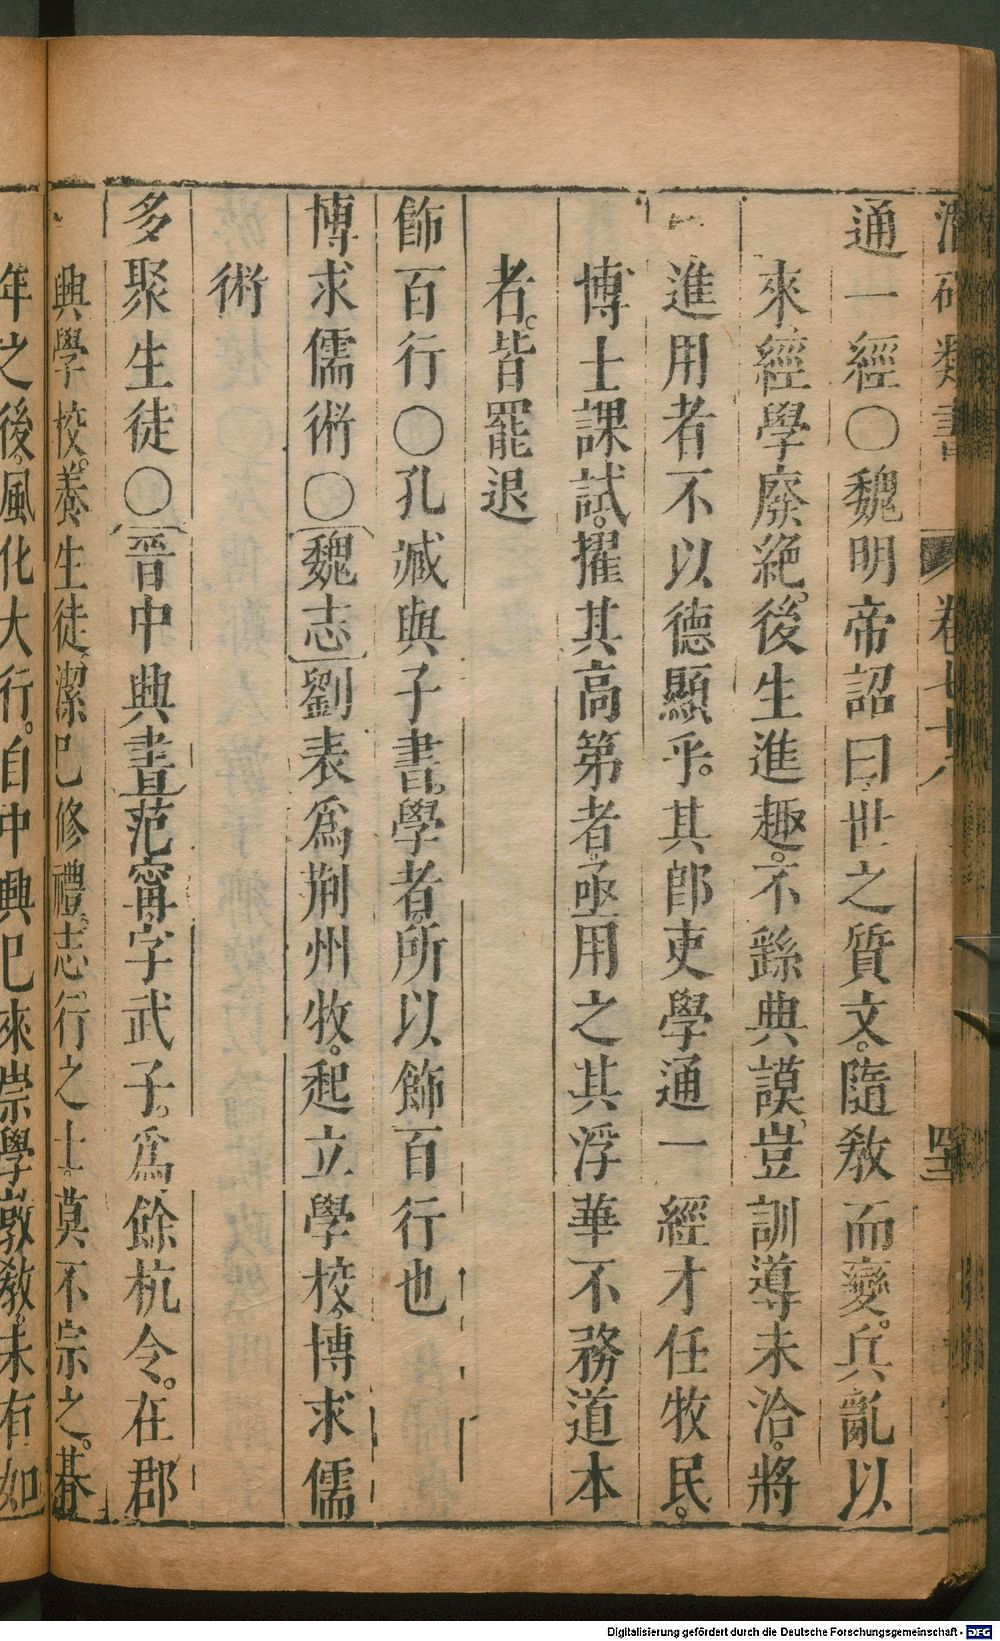 類書 卷七十八
通一經〇魏明帝詔曰世之質文。隨敎而變。兵亂以
來經學廢絶。後生進趣。不繇典謨。豈訓導未洽。將
進用者不以德顯乎。其郎吏學通一經才任牧民。
博士課試。擢其高第者。亟用之其浮華不務道本
者。皆罷退
飾百行〇孔臧與子書。學者。所以飾百行也
博求儒術〇魏志劉表爲荆州牧。起立學校。博求儒
術
多聚生徒〇晉中興書范甯。字武子。爲餘杭令。在郡
興學校。養生徒。潔已修禮。志行之士。莫不宗之。朞
年之後。風化大行。自中興已來崇學敦敎。未有如
Digitalisierung gefördert durch die Deutsche Forschungsgemeinschaft - DFG